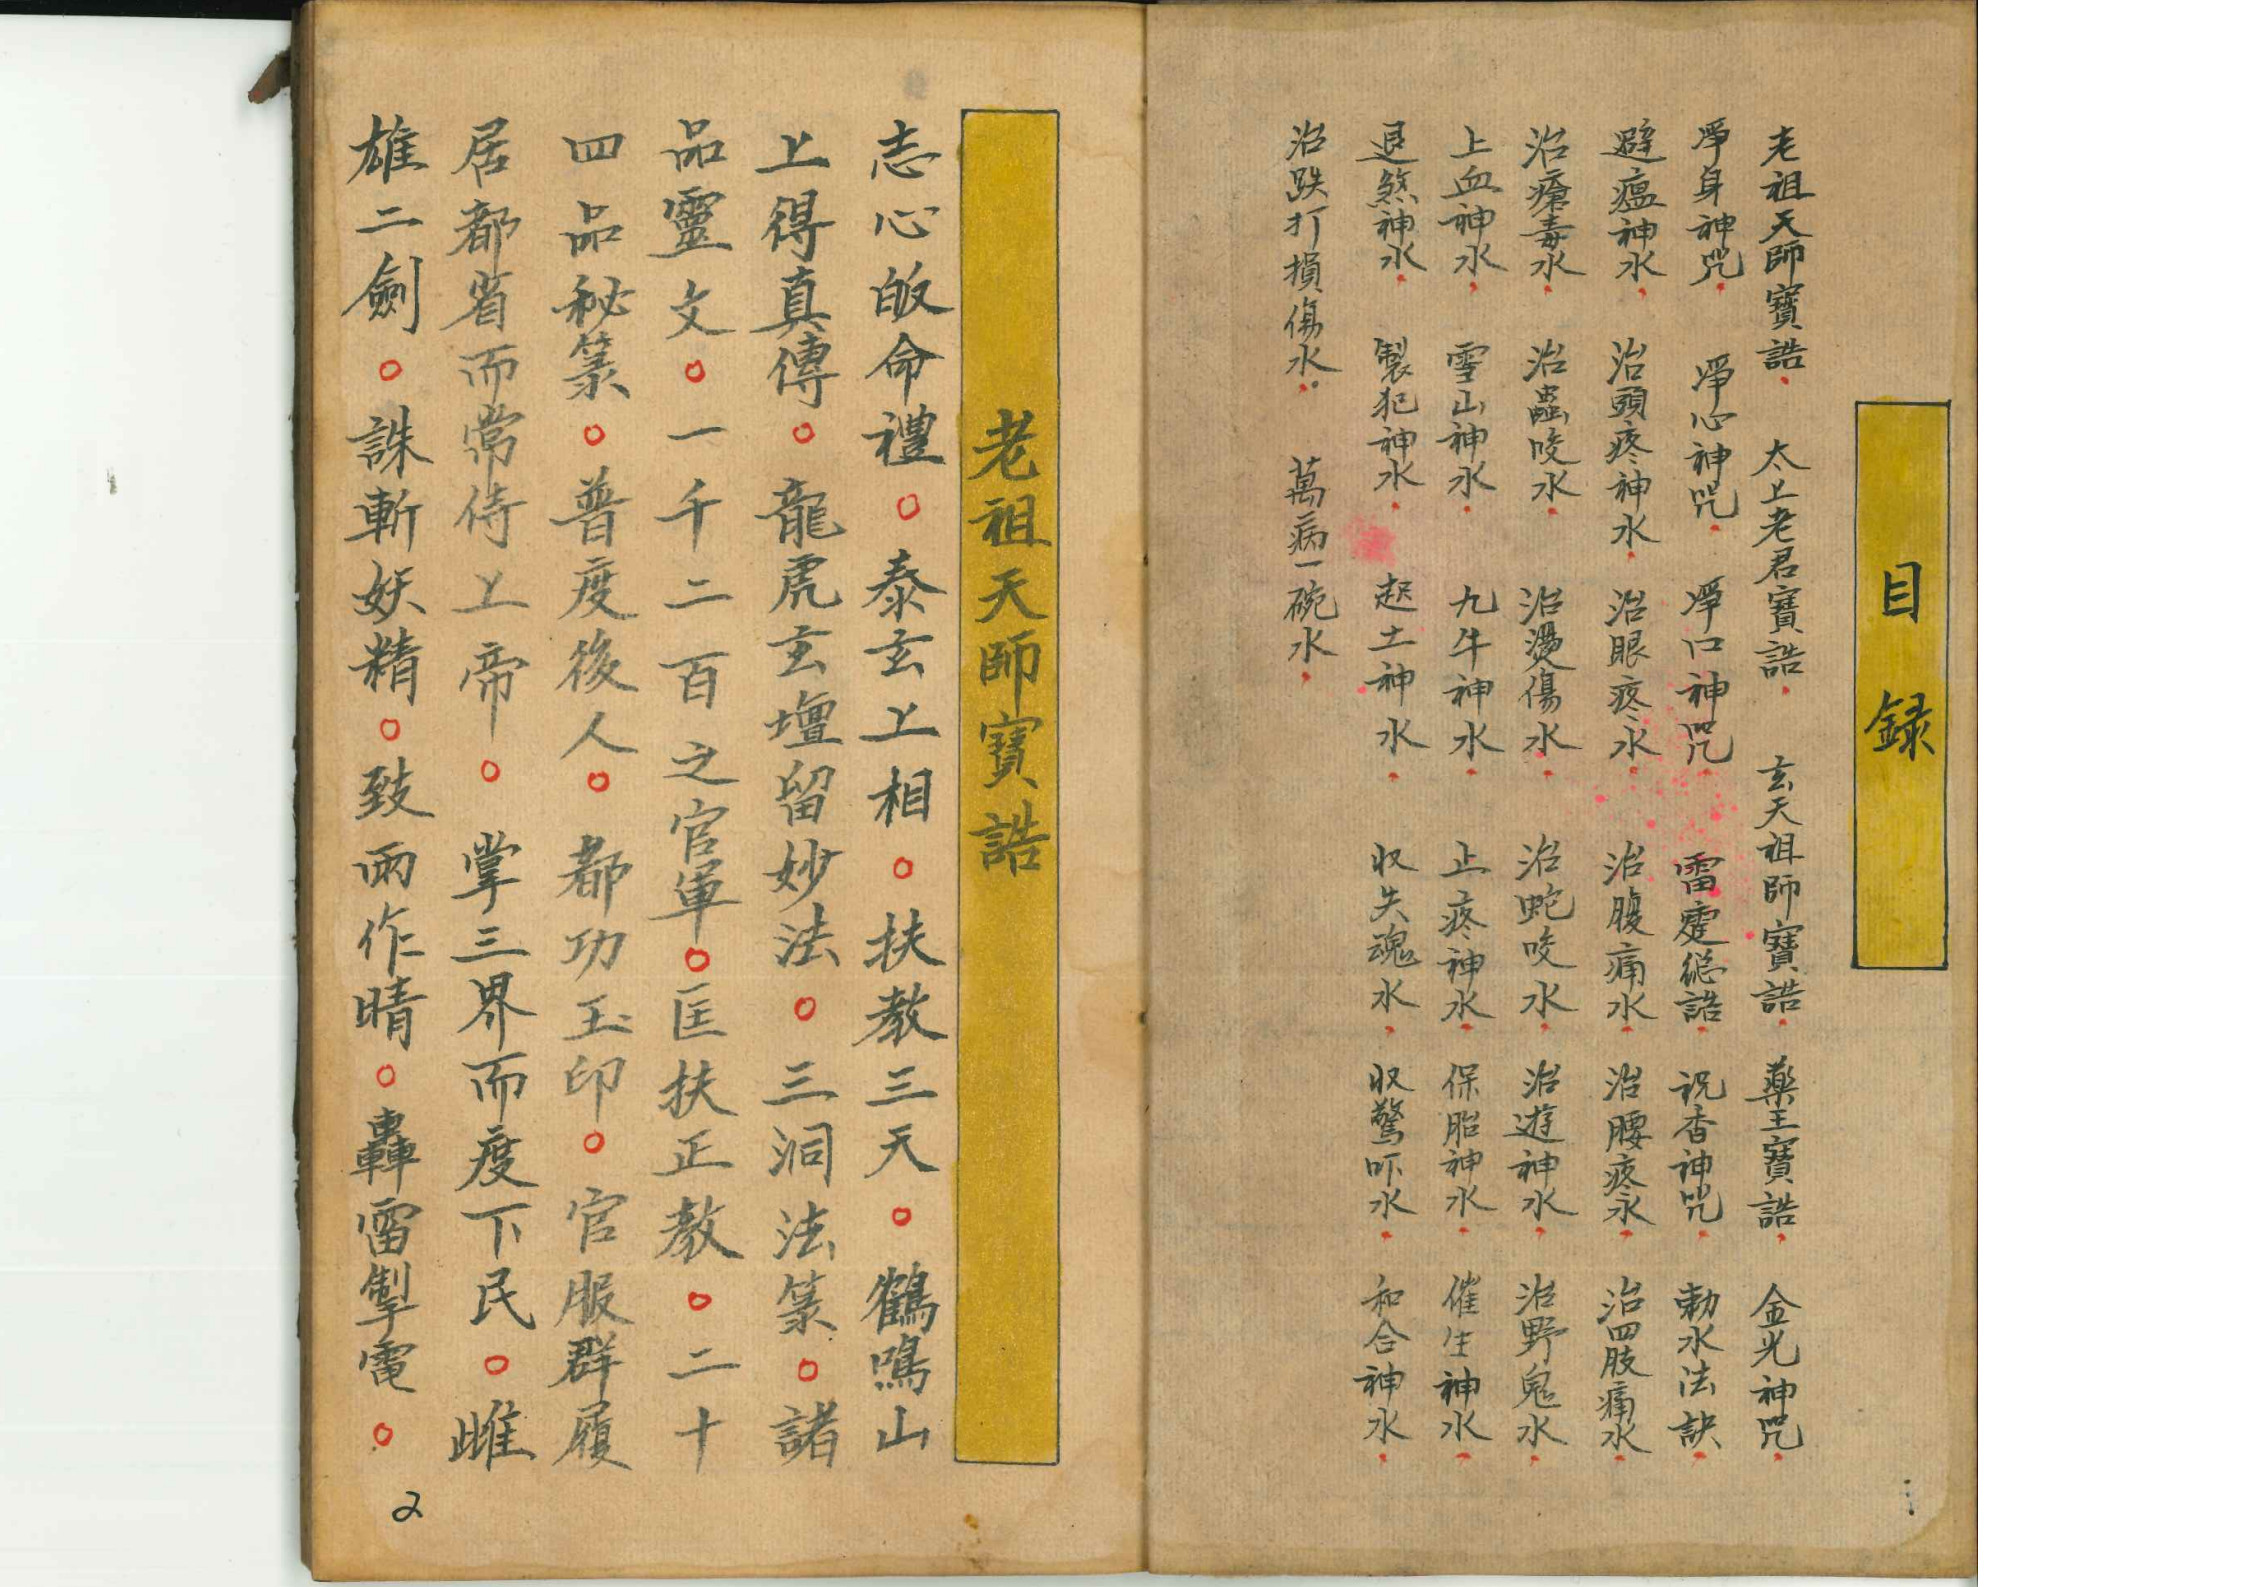 目録
老祖天師寶誥 太上老君寶誥 玄天祖師寶誥 藥王寶誥 金光神咒
淨身神咒 淨心神咒 淨口神咒 雷霆總誥 祝香神咒 勅水法訣
避瘟神水 治頭疼神水 治眼疼水 治腹痛水 治腰疼水 治四肢痛水
治瘡毒水 治蟲咬水 治燙傷水 治蛇咬水 治遊神水 治野鬼水
止血神水 雪山神水 九牛神水 止疼神水 保胎神水 催生神水
退煞神水 製犯神水 起土神水 収失魂水 収驚吓水 和合神水
治跌打損傷水 萬病一碗水
老祖天師寶誥
志心皈命禮○泰玄上相○扶教三天○鶴鳴山
上得真傳○龍虎玄壇留妙法○三洞法篆○諸
品靈文○一千二百之官軍○匡扶正教○二十
四品秘篆○普度後人○都功玉印○官服群履
居都省而常侍上帝○掌三界而度下民○雌
雄二劍○誅斬妖精○致雨作晴○轟雷掣電○
2